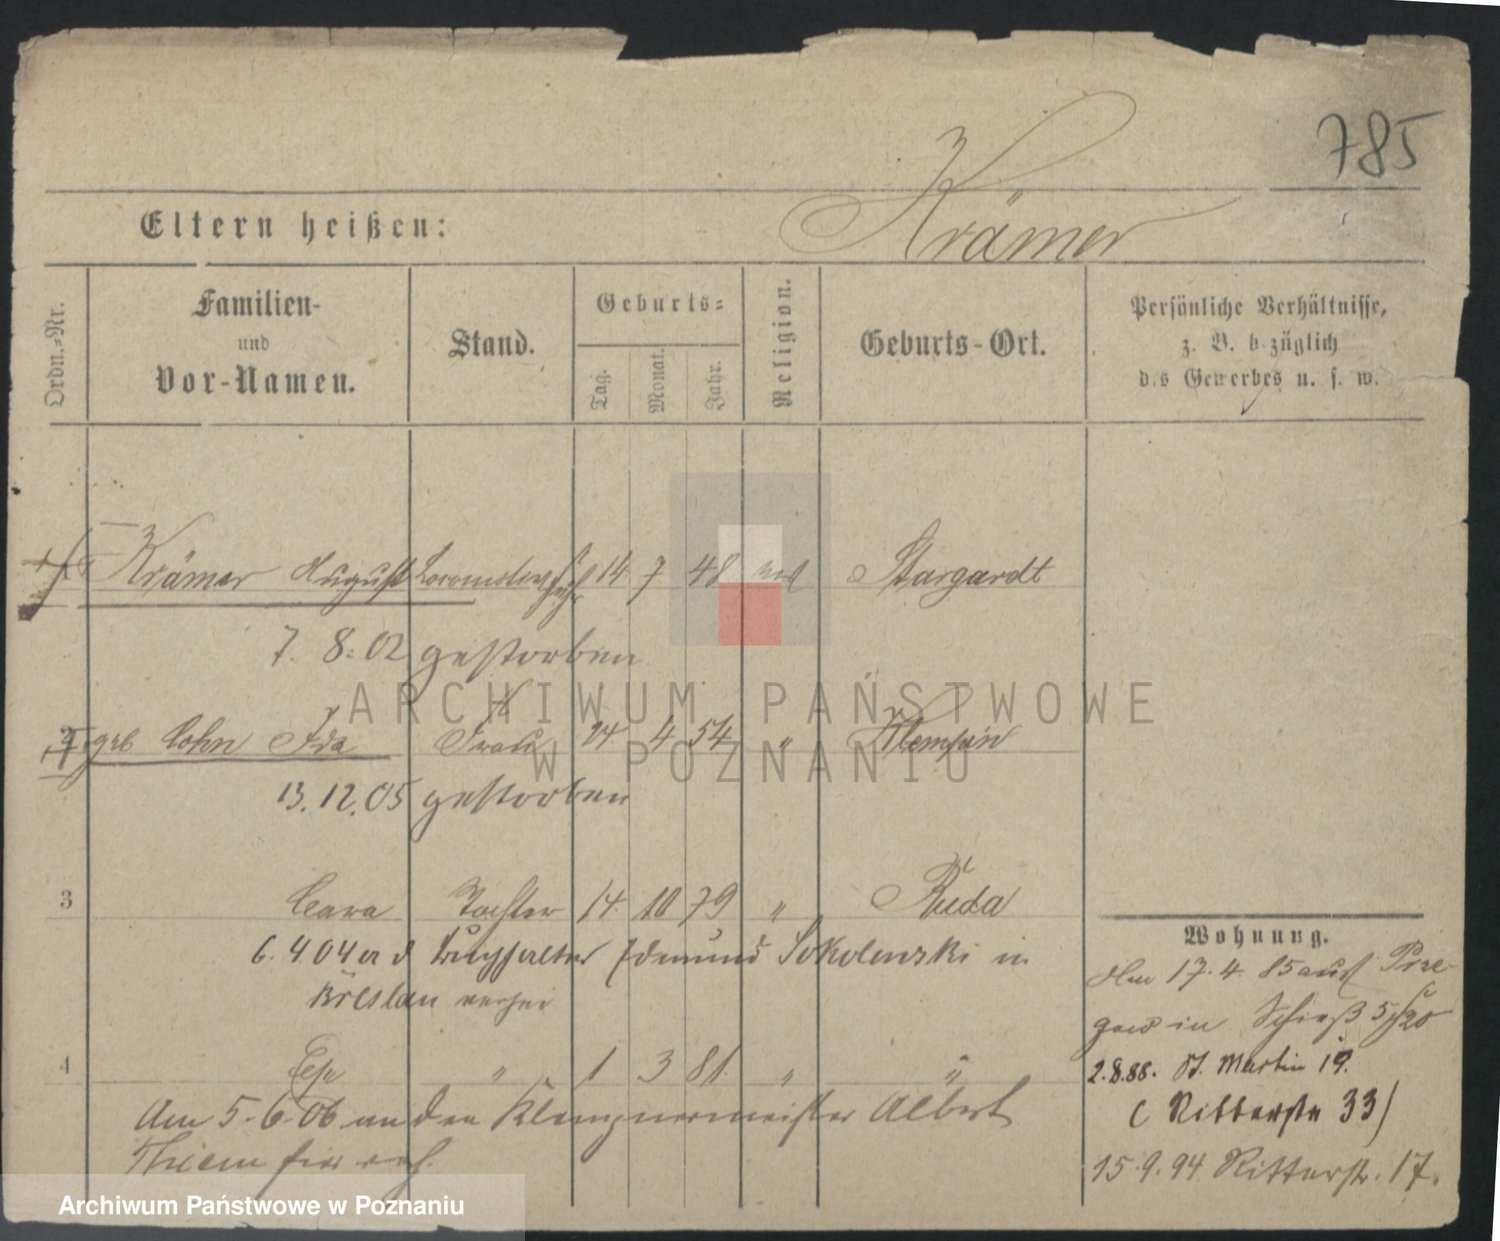 785
Krämer
Eltern heißen:
Ordn.-Nr.
Familien-
und
Vor-Namen.
Stand.
Geburts-
Tag.
Monat.
Jahr.
Religion.
Geburts-Ort.
Persönliche Verhältnisse,
z. B. bezüglich
des Gewerbes u. s. w.
1 Krämer August 14 7 48 Stargardt
7. 8. 02 gestorben
2 geb Cohn Ida Frau 24 4 54 "
13. 12. 05 gestorben
3 Tochter 14 10 79 " Ruda
6. 4 04 Buchhalter Edmund Sokolowski in
Breslau
4 " 1 3 81 " "
Am 5. 6. 06 an den Klempnermeister Albert
Thiem
Wohnung.
17. 4. 85
in Schieß 5/20
2.8.88. St. Martin 19.
(Ritterstr 33)
15. 9. 94 Ritterstr. 17.
ARCHIWUM PAŃSTWOWE
W POZNANIU
Archiwum Państwowe w Poznaniu